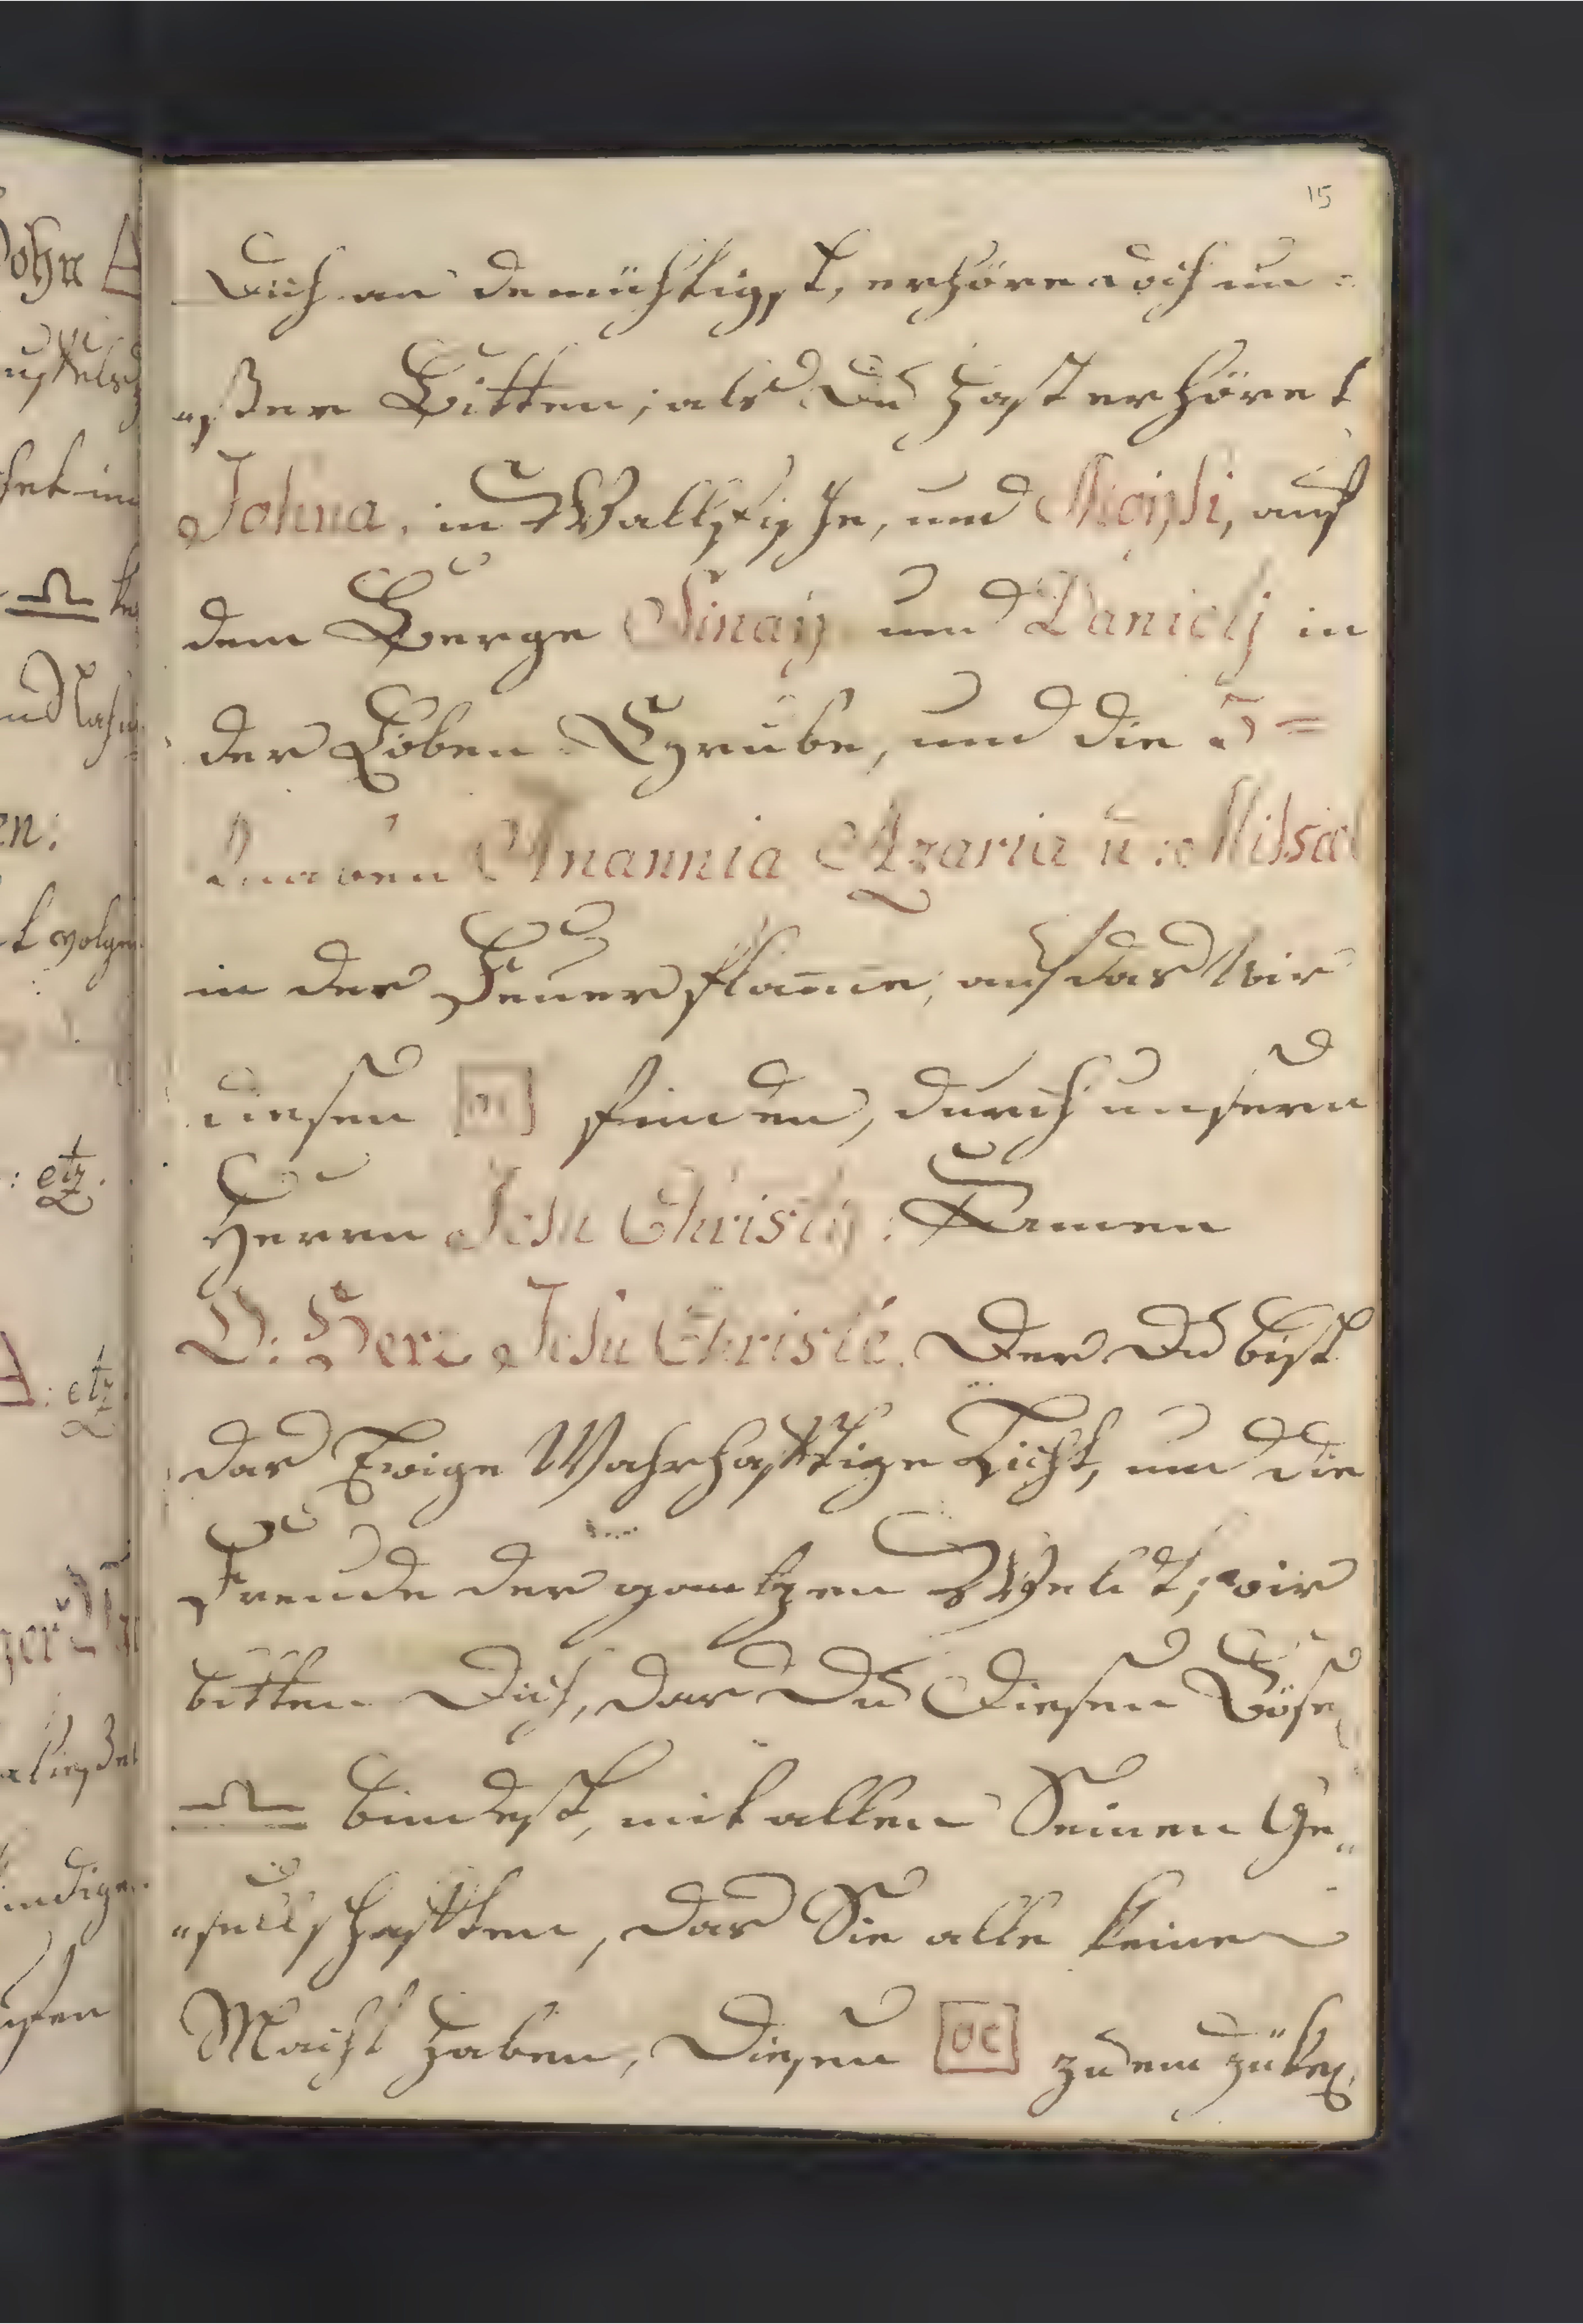 15
Dich an demühtigst, erhöre doch un=
"ßer Bitten, als Du hast erhöret
Johna, in Wallfische, und Moisi, auf
dem Berge Sinaÿ und Danielj in
der Löben Gruube, und die 3=
Knaben Anannia Azaria ū: Misael
in der Feuer flam̄e, auf das wir
diesen finden, durch unsern
Herrn Jesu Christÿ: Amen
O: Herr Jesu Christe. Der Du bist
das Ewige Wahrhafftige Licht, und die
Freude der gantzen Welt, wir
bitten Dich, das Du Diesen Böse
♎ bindest, mit allen Seinen Ge"
"sellschafften, das Sie alle keine
Macht haben, Diesen OC